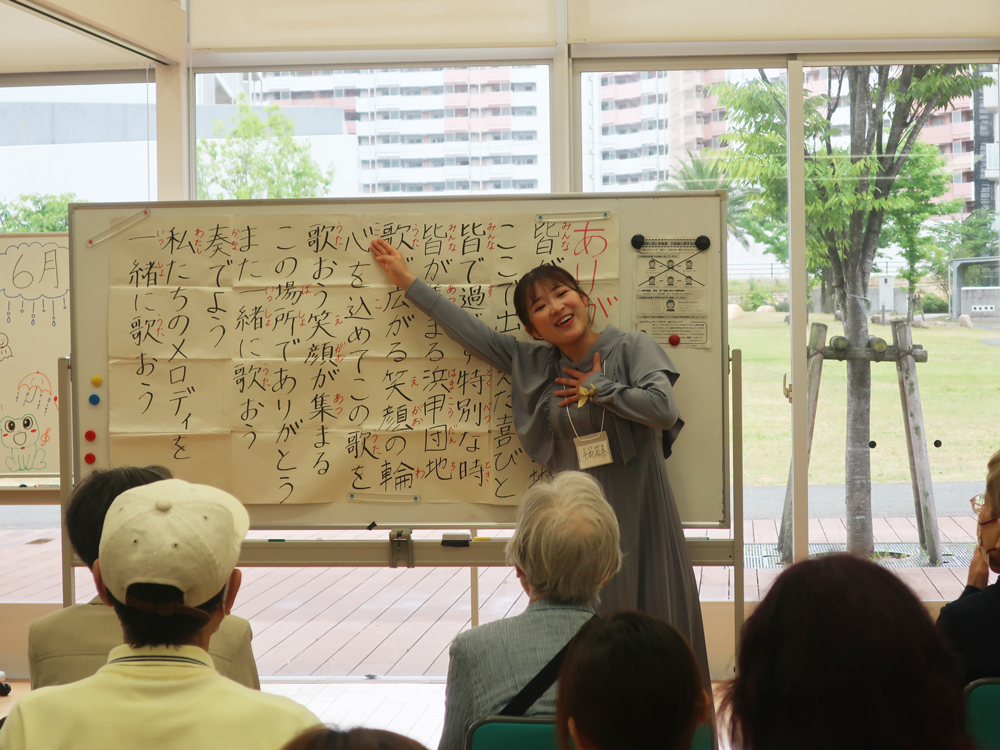 ありが
皆が 地
ここで出 た喜びと
皆で過 す特別な時
皆が まる浜甲団地
歌で広がる笑顔の輪
心を込めてこの歌を
歌おう笑顔が集まる
この場所でありがとう
また一緒に歌おう
奏でよう
私たちのメロディを
一緒に歌おう
6月